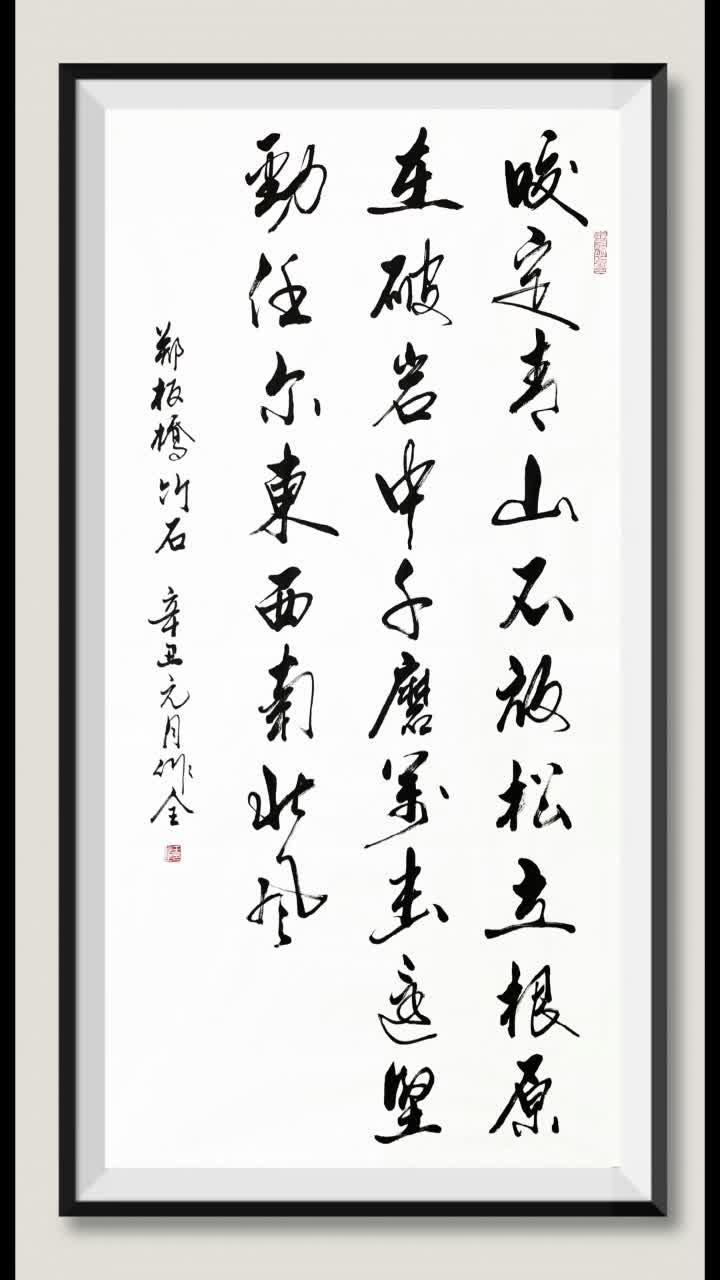 咬定青山不放松立根原
在破岩中千磨萬击還堅
勁任尔東西南北风
鄭板橋竹石 辛丑元月 全